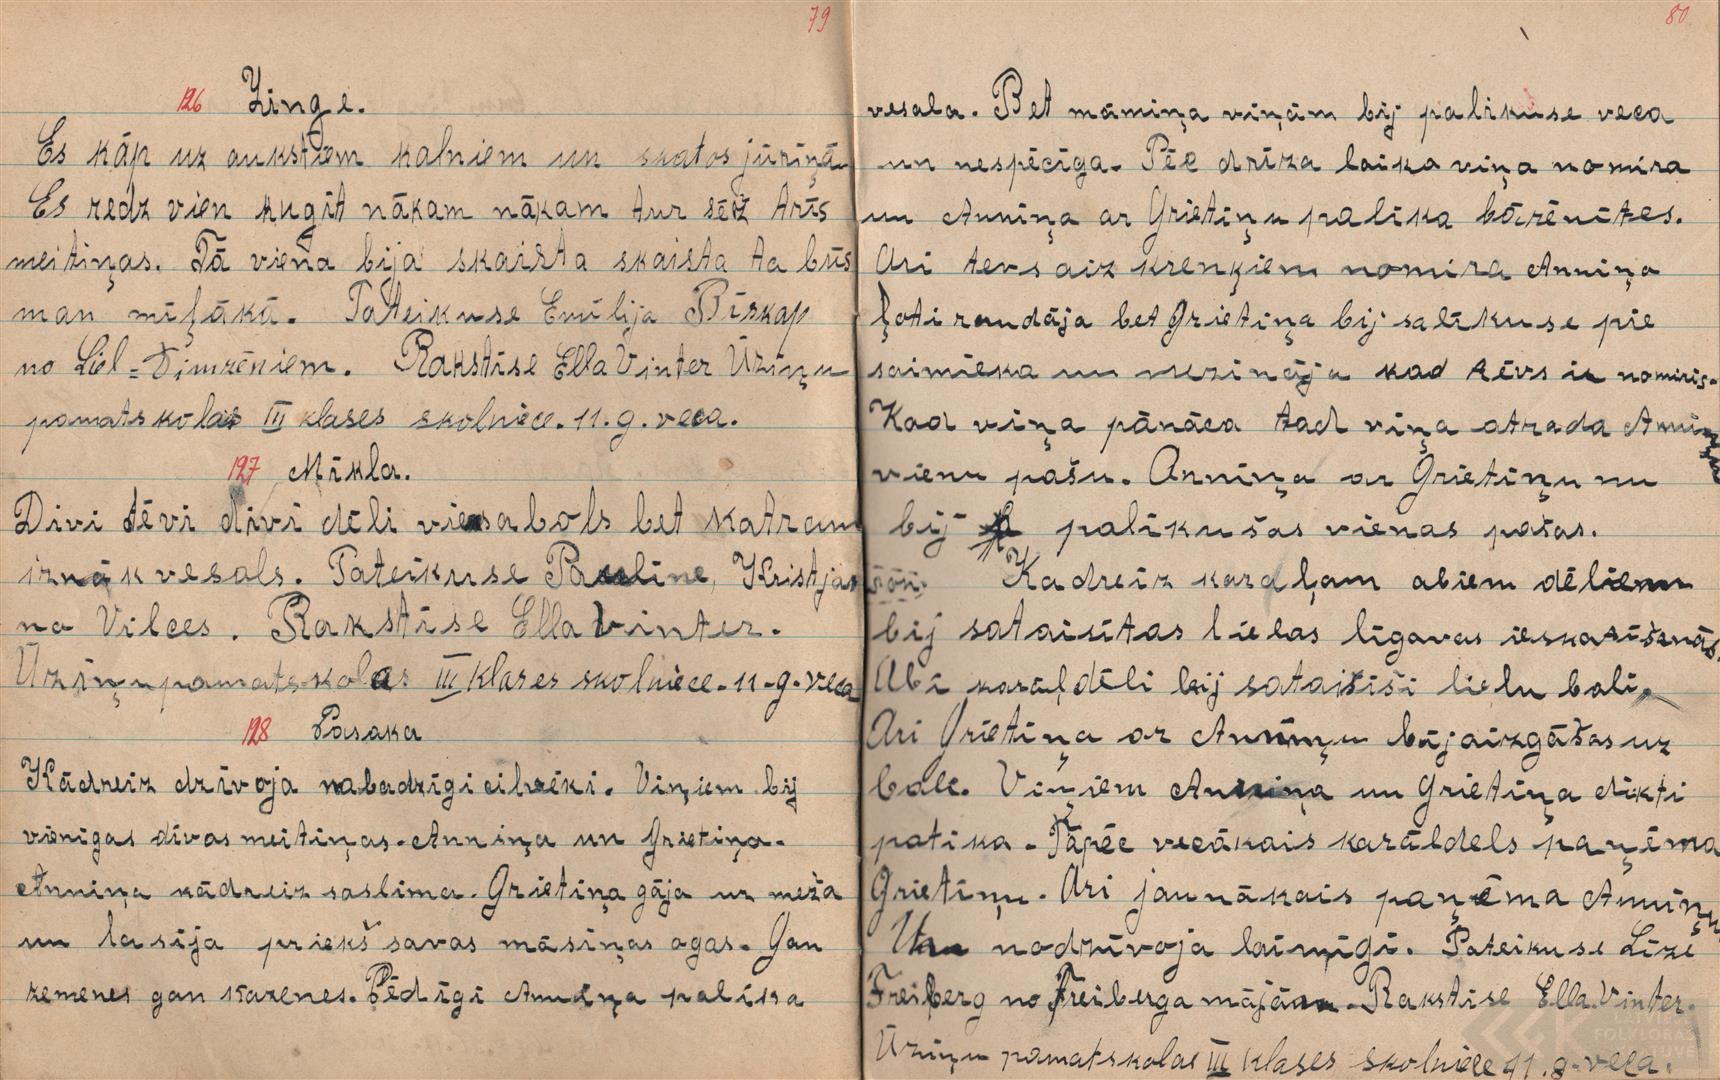 79
126 Zinge.
Es kāp uz aukstiem kalniem un skatos jūriņā
Es redz vien kugīt nākam nākam tur sēž trīs
meitiņas. Tā viena bija skaista skaista ta būs
man mīļākā. Pateikuse Emīlija Bīskap
no Liel-Dimzēniem. Rakstīse Ella Vinter Ūziņu
pamatskolas III klases skolniece. 11. g. veca.
127 Mīkla.
Divi tēvi divi dēli viens abols bet katram
iznāk vesals. Pateikuse Pauline, Kristjan
no Vilces. Rakstīse Ella Vinter.
Ūziņu pamatskolas III klases skolniece - 11 - g. veca
128 Pasaka
Kādreiz dzīvoja nabadzīgi cilvēki. Viņiem bij
vienīgas divas meitiņas. Anniņa un Grietiņa.
Anniņa kādreiz saslima. Grietiņa gāja uz meža
un lasija priekš savas māsiņas ogas. Gan
zemenes gan kazenes. Pēdīgi Anniņa palika
80
vesala. Bet māmiņa viņām bij palikuse veca
un nespēcīga. Pēc drīza laika viņa nomira
un Anniņa ar Grietiņu palika bārēnītes.
Ari tevs aiz krenķiem nomira Anniņa
ļoti raudāja bet Grietiņa bij salīkuse pie
saimieka un nezināja kad tēvs ir nomiris.
Kad viņa pānāca tad viņa atrada Anniņu
vienu pašu. Anniņa ar Grietiņu nu
bij palikušas vienas pašas.
Kadreiz karaļam abiem dēliem
bij sataisītas lielas līgavas ieskatīšanās.
Abi karāļdēli bij sataisiši lielu bali.
Ari Grietiņa ar Anniņu bij aizgāšas uz
bali. Viņiem Anniņa un Grietiņa dikti
patika. Tāpēc vecākais karāldels paņēma
Grietiņu. Ari jaunākais paņēma Anniņu
Un nodzīvoja laimīgi. Pateikuse Līze
Freiberg no Freiberga mājām. Rakstīse Ella Vinter.
Ūziņu pamatskolas III klases skolniece 11. g. veca.